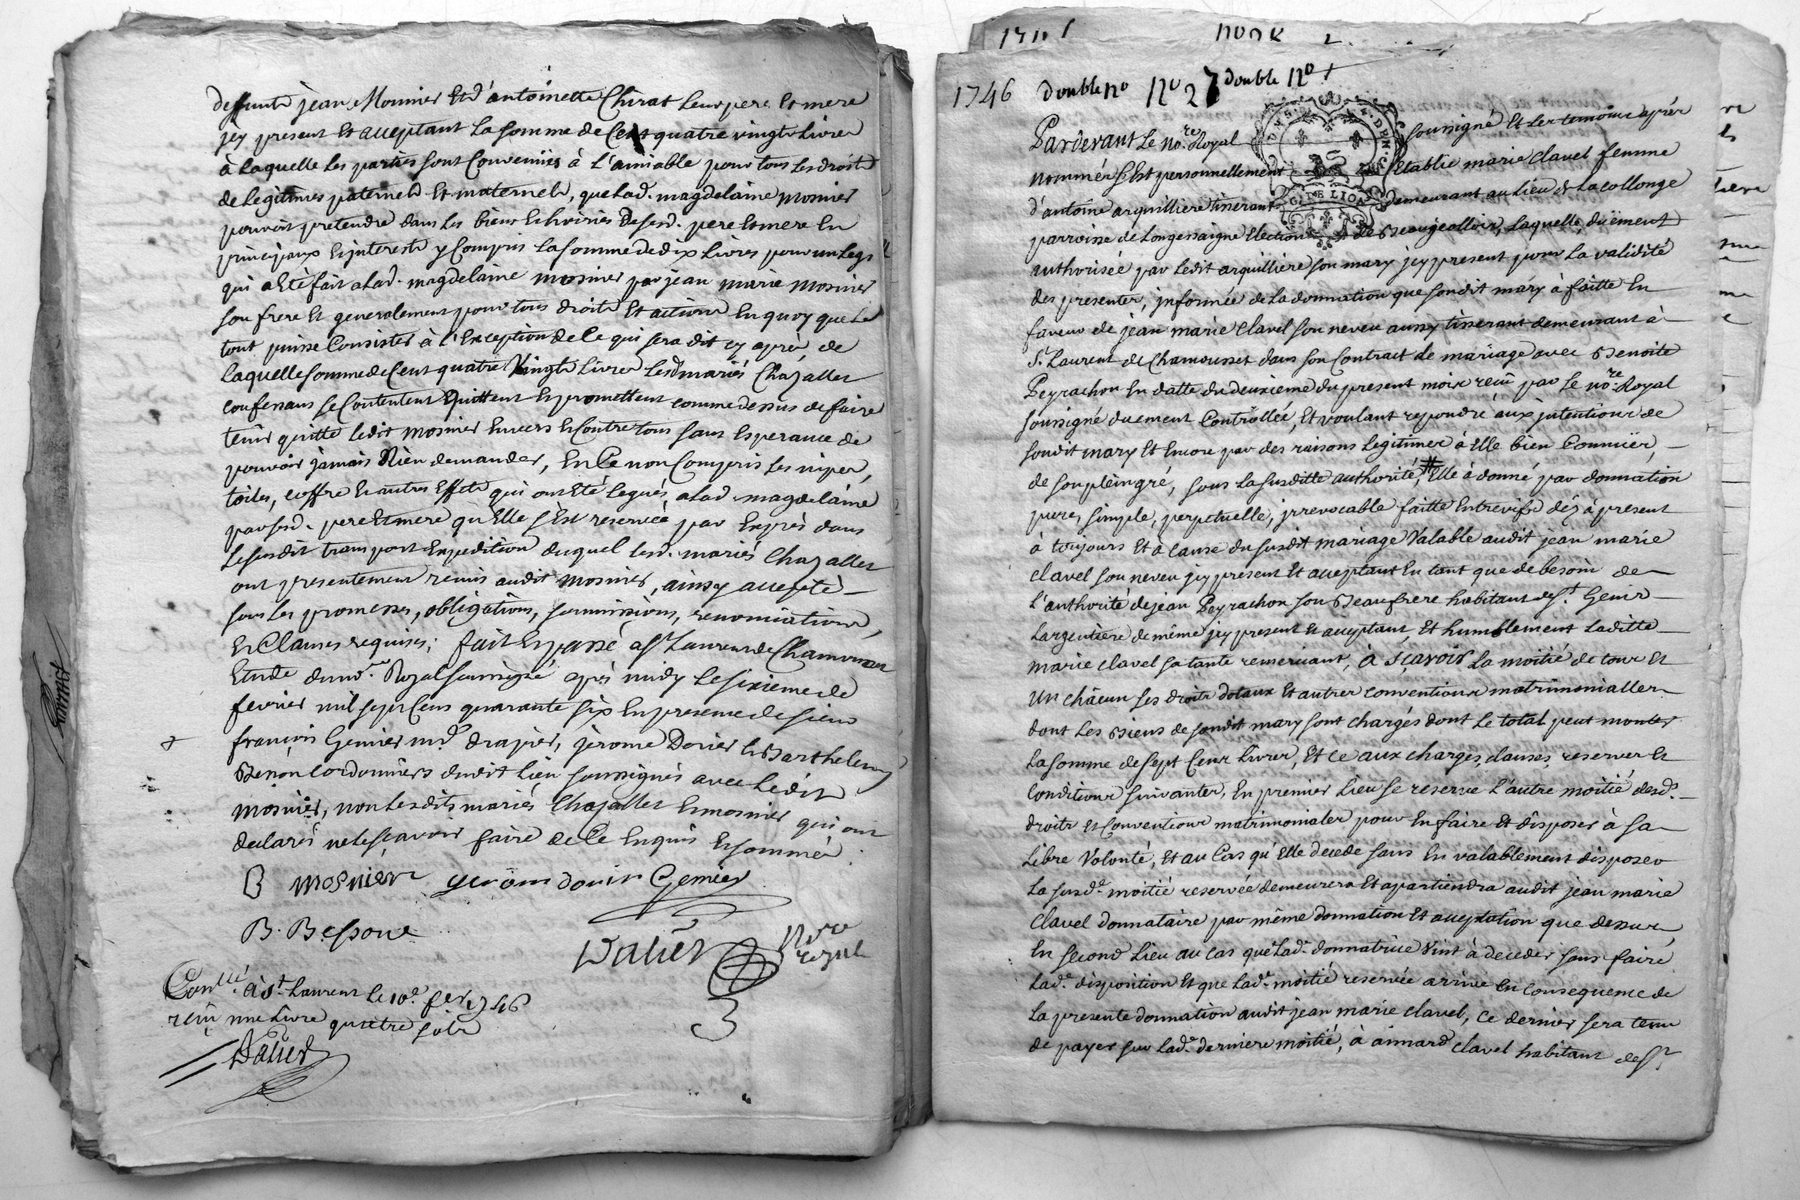 deffunts jean Mosnier Et d'antoinette Chirat Leur pere Et mere
jcy present Et acceptant La somme de Cent quatre vingts Livres
à Laquelle Les parties sont Convenües à L'amiable pour tous Les droits
de Legitimes paternels Et maternels, que Lad. magdelaine mosnier
pouvoit pretendre dans Les biens Et hoiries de sesd. pere Et mere En
principaux Et interests y Compris La somme de dix Livres pour un Legs
qui a Eté fait a Lad. magdelaine mosnier par jean marie mosnier
son frere Et generalement pour tous droits Et actions En quoy que Le
tout puisse Consister à L'Exception de Ce qui sera dit cy après, de
Laquelle somme de Cent quatre Vingts Livres Lesd mariés Chazallet
confessans se Contentent Quittent Et promettent comme dessus de faire
tenir quitte Ledit mosnier Envers Et Contre tous sans Esperance de
pouvoir jamais Rien demander, En Ce non Compris Les nipes,
toiles, coffre Et autres Effets qui ont Eté Legués a Lad. magdelaine
par sesd. pere Et mere qu'Elle s'Est reservée par Exprès dans
Le susdit transport Expedition duquel Lesd. mariés Chazallet
ont presentement remis audit mosnier, ainsy accepté
sous Les promesses, obligations, soummissions, renonciations,
Et Clauses requises; fait Et passé a St Laurent de Chamousset
Etude du no.re Royal soussigné après midy Le sixieme de
fevrier mil sept Cens quarante six En presence de sieur
françois Genier md. drapier, jerome Dorier Et Barthelemy
Besson Cordonniers dudit Lieu soussignés avec Ledit
mosnier, non Lesdits mariés Chazallet Et mosnier qui ont
declarés ne Le sçavoir faire de Ce Enquis Et sommés.
B mosnier jerome dorier Genier
B. Bessone
Dalier
Nore
royal
Con.llé à St. Laurent Le 10e. fev. 1746
reçu une Livre quatre sols
Dalier
1746 double no No 27 double no 1
Pardevant Le no.re Royal soussigné Et Les temoins après
nommés s'Est personnellement Etablie marie Clavel femme
d'antoine arquilliere tisserant demeurant au Lieu de La collonge
parroisse de Longessaigne Election de Beaujeollois, Laquelle, düement
authorisée par Ledit arquilliere son mary jcy present pour La validité
des presentes, jnformée de La donnation que sondit mary à faitte En
faveur de jean marie Clavel son neveu aussy tisserant demeurant à
St. Laurent de Chamousset dans son Contract de mariage avec Benoite
Peyrachon En datte du deuxieme du present mois reçu par Le no.re Royal
soussigné duement Controllée, Et voulant repondre aux jntentions de
sondit mary Et Encore par des raisons Legitimes à Elle bien Connües,
de son plein gré, sous La susditte authorité, # Elle à donné par donnation
pure, simple, perpetuelle, jrrevocable faitte Entre vifs déz à present
à toujours Et à Cause du susdit mariage Valable audit jean marie
Clavel son neveu jcy present Et acceptant En tant que de besoin de
L'authorité de jean Peyrachon son Beaufrere habitant de St. Genis
Largentiere de même jcy present Et acceptant, Et humblement Laditte
marie Clavel sa tante remerciant, à Sçavoir La moitié de tous Et
un chacun ses droits dotaux Et autres conventions matrimonialles
dont Les Biens de sondit mary sont chargés dont Le total peut monter
La somme de sept Cens Livres, Et ce aux charges, clauses, reserves Et
conditions suivantes, En premier Lieu se reserve L'autre moitié desd.
droits Et Conventions matrimoniales pour En faire Et disposer à sa
Libre Volonté, Et au Cas qu'Elle decede sans En valablement disposer
La susd.e moitié reservée demeurera Et apartiendra audit jean marie
Clavel donnataire par même donnation Et acceptation que dessus,
En second Lieu au cas que Lad.e donnatrice Vint à deceder sans faire
Lad.e disposition Et que Lad.e moitié reservée arrive En consequence de
La presente donnation audit jean marie Clavel, Ce dernier sera tenu
de payer sur Lad.e derniere moitié, à aimard Clavel habitant de St.